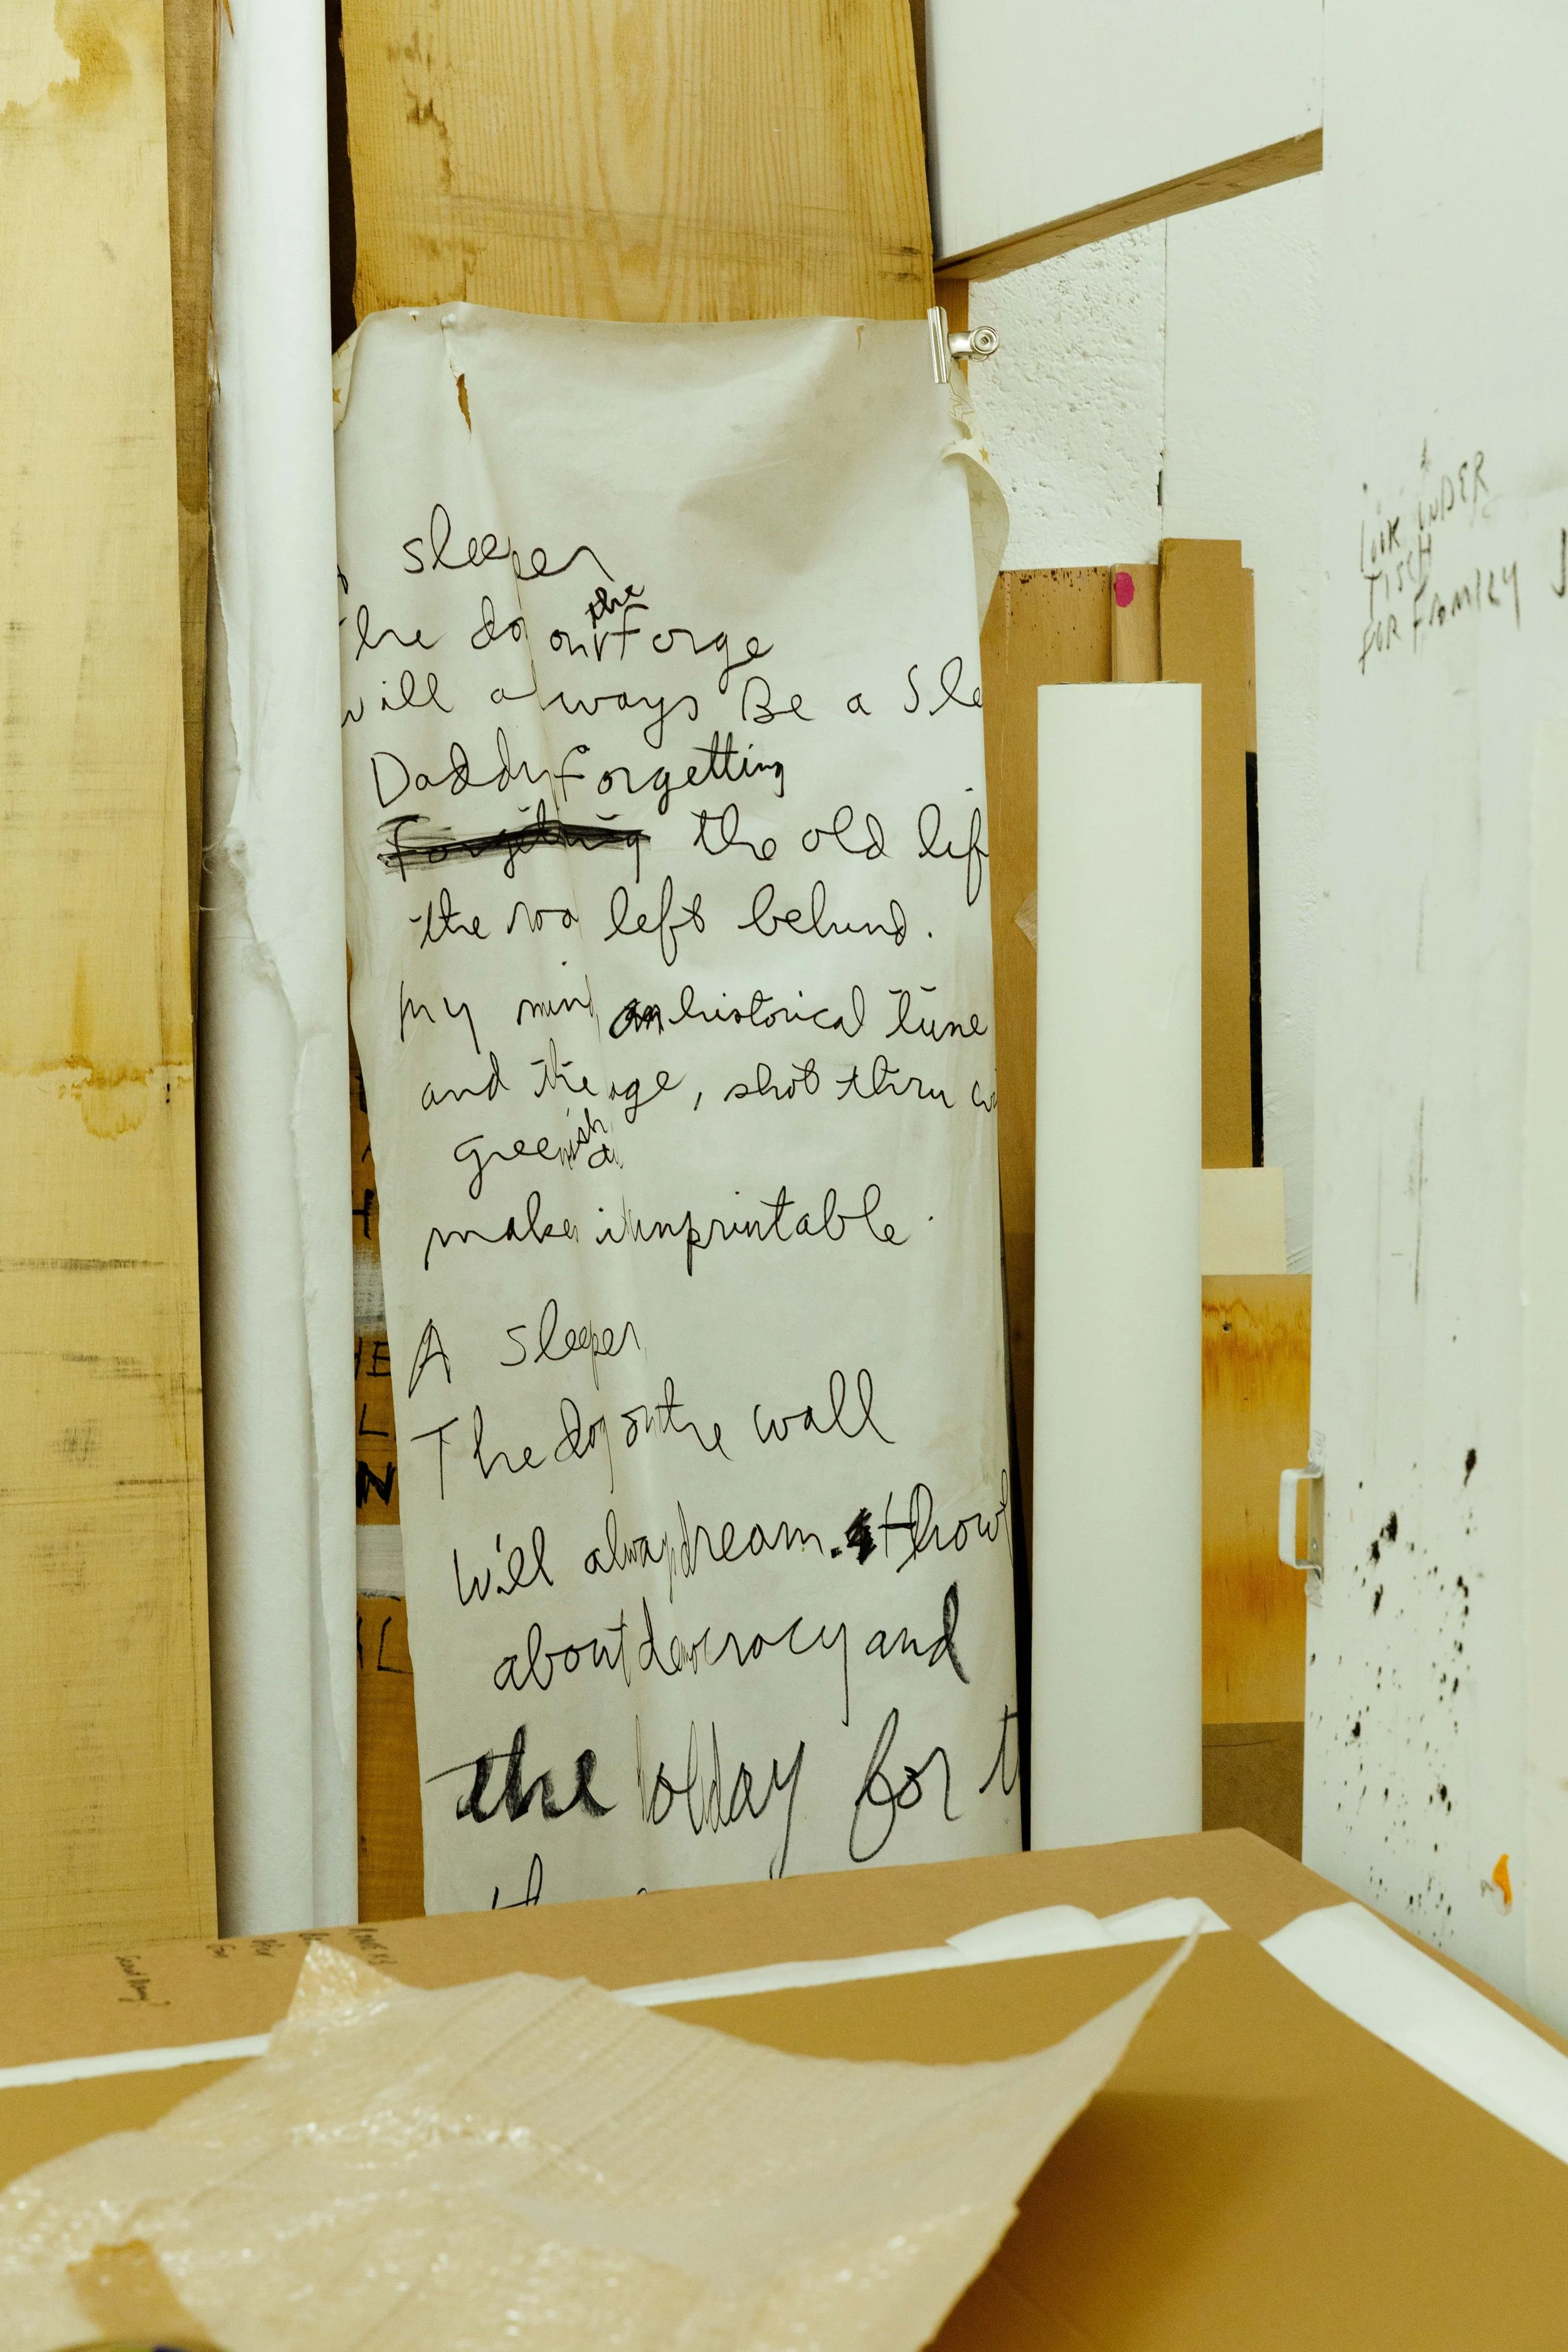 sleeper
the
he dog on Forge
will always Be a Sle
Daddy Forgetting
Forgetting the old lif
the left behind.
my mind an historical tune
and the age, shot thru
greenish
makes it unprintable.
A sleeper
The dog on the wall
will always dream. thow
about democracy and
the holiday for t
LOOK UNDER
TISCH
FOR FRAMKEY
HE
L
N